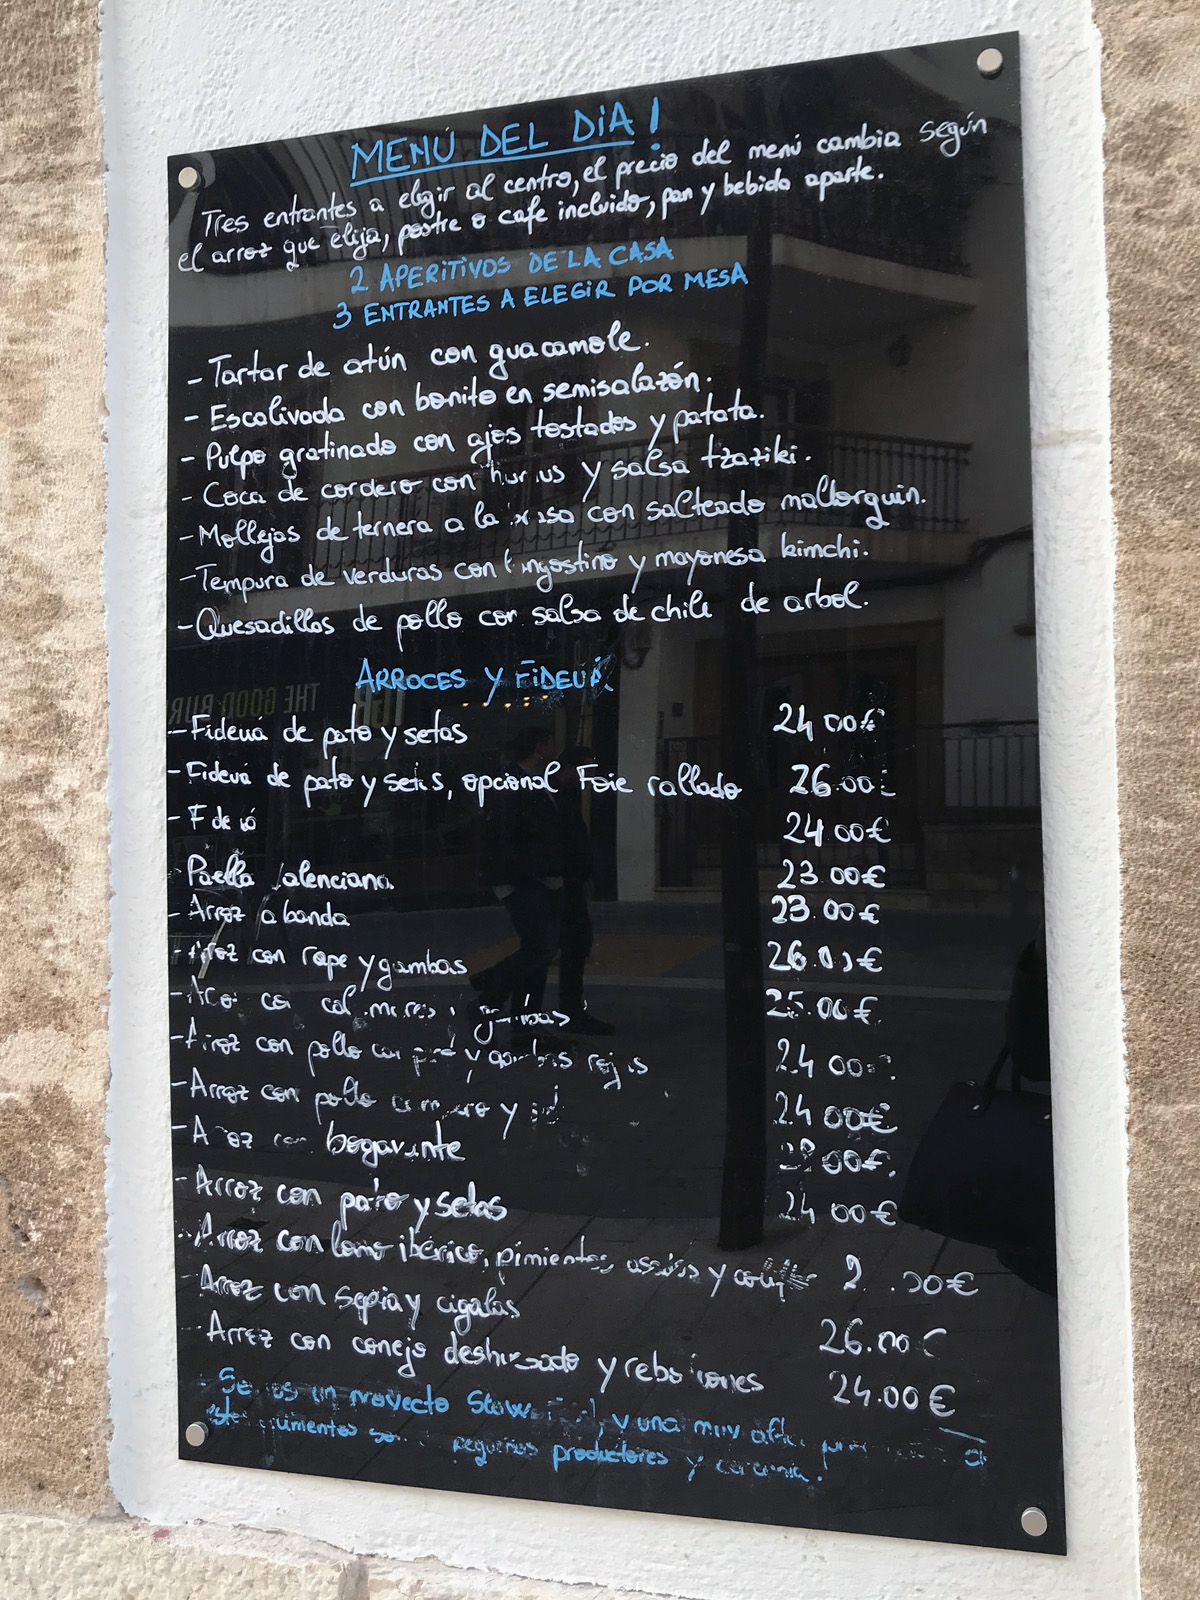 MENÚ DEL DIA!
Tres entrantes a elegir al centro, el precio del menú cambia según
el arroz que elija, postre o cafe incluido, pan y bebida aparte.
2 APERITIVOS DE LA CASA
3 ENTRANTES A ELEGIR POR MESA
- Tartar de atún con guacamole.
- Escalivada con bonito en semisalazón.
- Pulpo gratinado con ajos tostados y patata.
- Coca de cordero con y salsa tzatziki.
- Mollejas de ternera a la con salteado mallorquin.
- Tempura de verduras con y mayonesa kimchi.
- Quesadillas de pollo con salsa de chile de arbol.
ARROCES Y FIDEUÁ
THE GOOD BUR
- Fideuá de pato y setas 24.00€
- Fideuá de pato y setas, opcional Foie rallado 26.00
- 24.00€
- Paella Valenciana 23.00€
- Arroz a banda 23.00€
- Arroz con rape y gambas 26.00€
- Arroz con 25.00€
- Arroz con pollo y gambas 24.00
- Arroz con pollo y 24.00€
- Arroz con bogavante
- Arroz con pato y setas 24.00€
- Arroz con lomo ibérico, pimientos, y
- Arroz con sepia y cigalas 26.00€
- Arroz con conejo y 24.00€
un proyecto y una muy
pequeños productores y